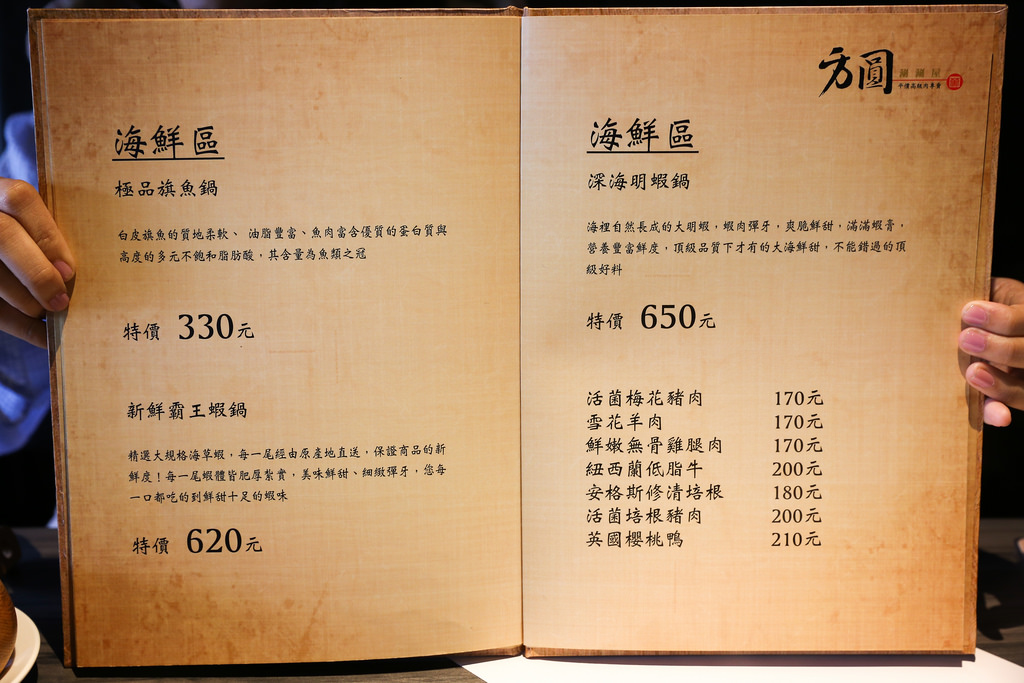 海鮮區
極品旗魚鍋
白皮旗魚的質地柔軟、油脂豐富、魚肉富含優質的蛋白質與
高度的多元不飽和脂肪酸，其含量為魚類之冠
特價 330元
新鮮霸王蝦鍋
精選大規格海草蝦，每一尾經由原產地直送，保證商品的新
鮮度！每一尾蝦體皆肥厚紮實，美味鮮甜、細緻彈牙，您每
一口都吃的到鮮甜十足的蝦味
特價 620元
方圓
涮涮屋
平價高級肉專賣
海鮮區
深海明蝦鍋
海裡自然長成的大明蝦，蝦肉彈牙，爽脆鮮甜，滿滿蝦膏，
營養豐富鮮度，頂級品質下才有的大海鮮甜，不能錯過的頂
級好料
特價 650元
活菌梅花豬肉 170元
雪花羊肉 170元
鮮嫩無骨雞腿肉 170元
紐西蘭低脂牛 200元
安格斯修清培根 180元
活菌培根豬肉 200元
英國櫻桃鴨 210元